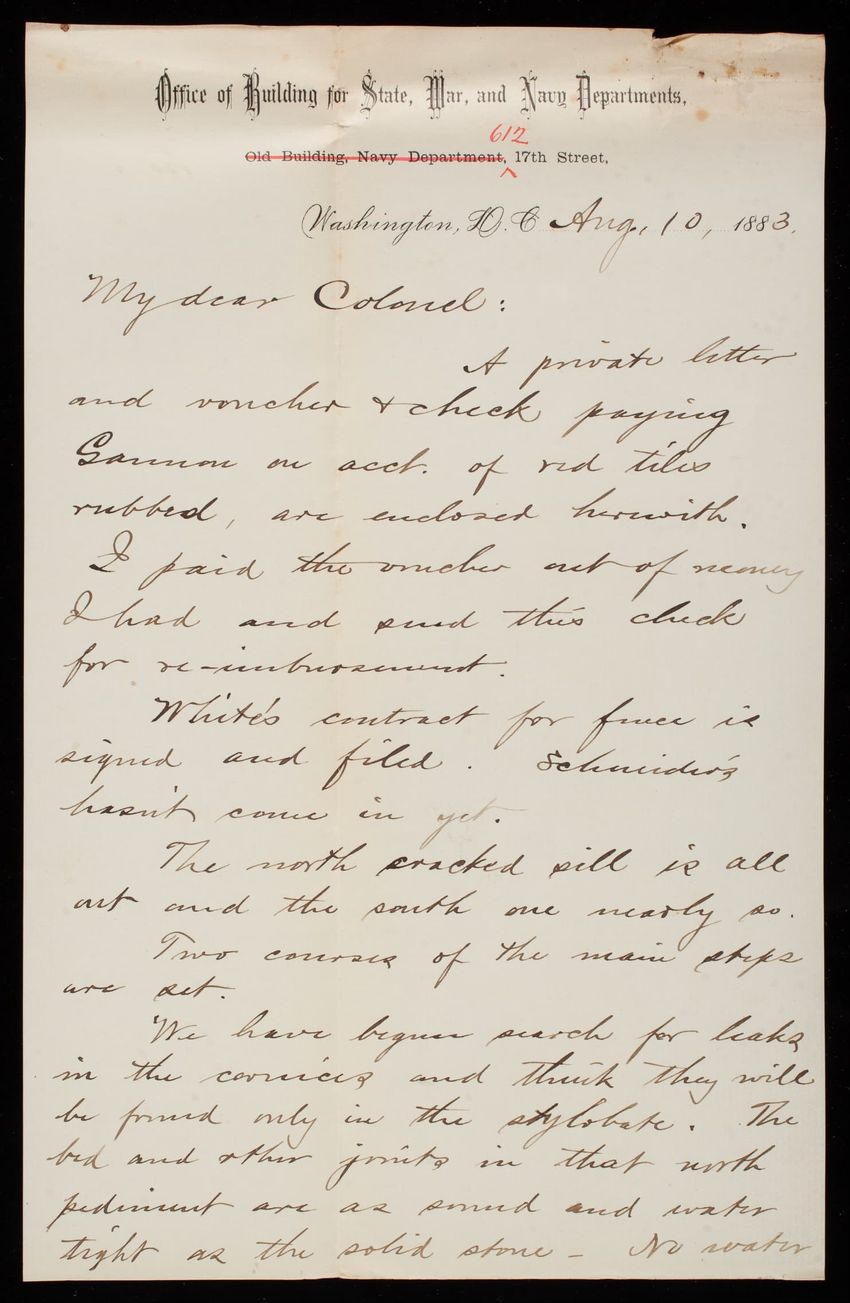 Office of Building for State, War, and Navy Departments,
612
Old Building, Navy Department, 17th Street,
Washington, D. C. Aug. 10, 1883.
My dear Colonel:
A private letter
and voucher & check paying
Gannon on acct. of red tiles
rubbed, are enclosed herewith.
I paid the voucher out of money
I had and send this check
for re-imbursement.
White's contract for fence is
signed and filed. Schneider's
hasn't come in yet.
The north cracked sill is all
out and the south one nearly so.
Two courses of the main steps
are set.
We have begun search for leaks
in the cornices and think they will
be found only in the stylobate. The
bed and other joints in that north
pediment are as sound and water
tight as the solid stone - No water